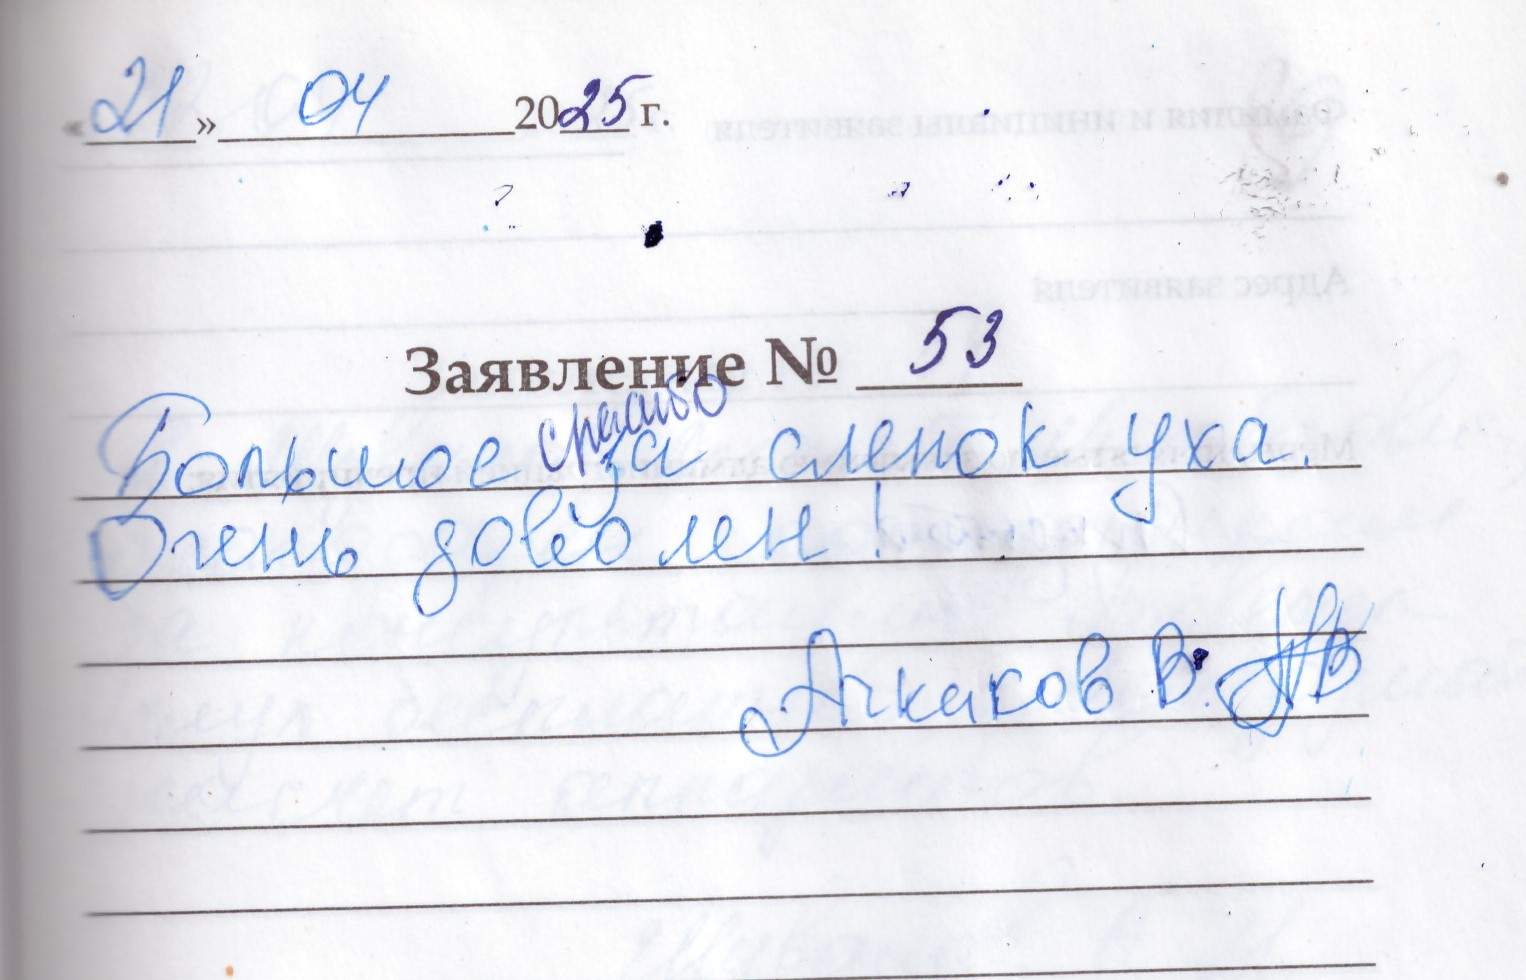 «21» 04 2025 г.
Заявление № 53
Большое спасибо за слепок уха.
Очень доволен!
Ачкаков В.